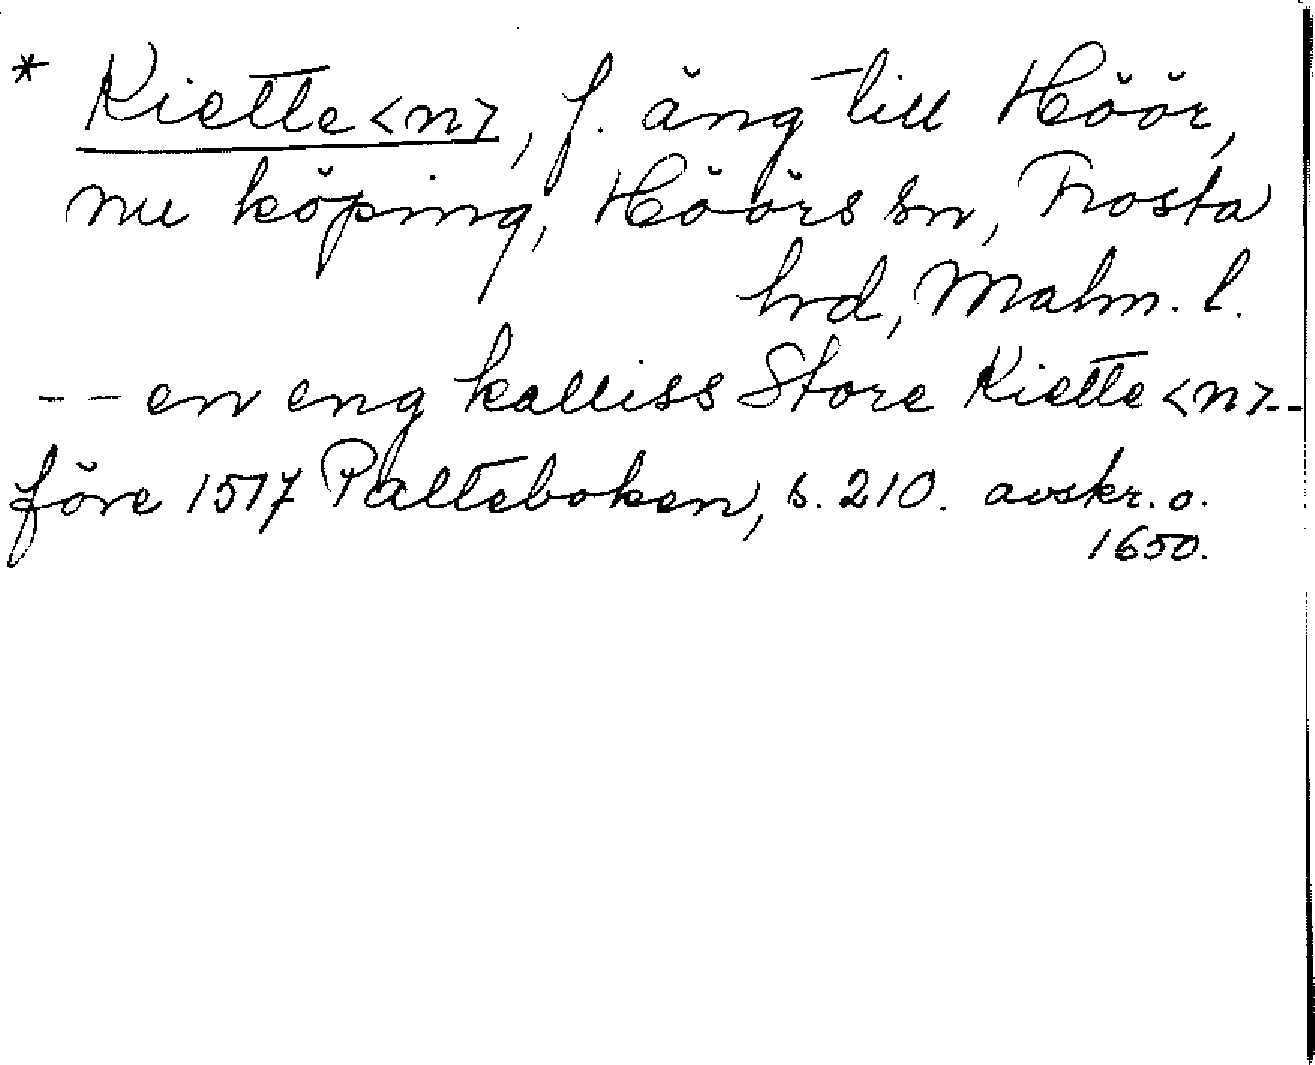 * Kiette<n>, f. äng till Höör,
nu köping, Höörs sn, Frosta
hrd, Malm. l.
-- en eng kalliss Store Kiette<n>--
före 1517 Palteboken, s. 210. avskr. o.
1650.